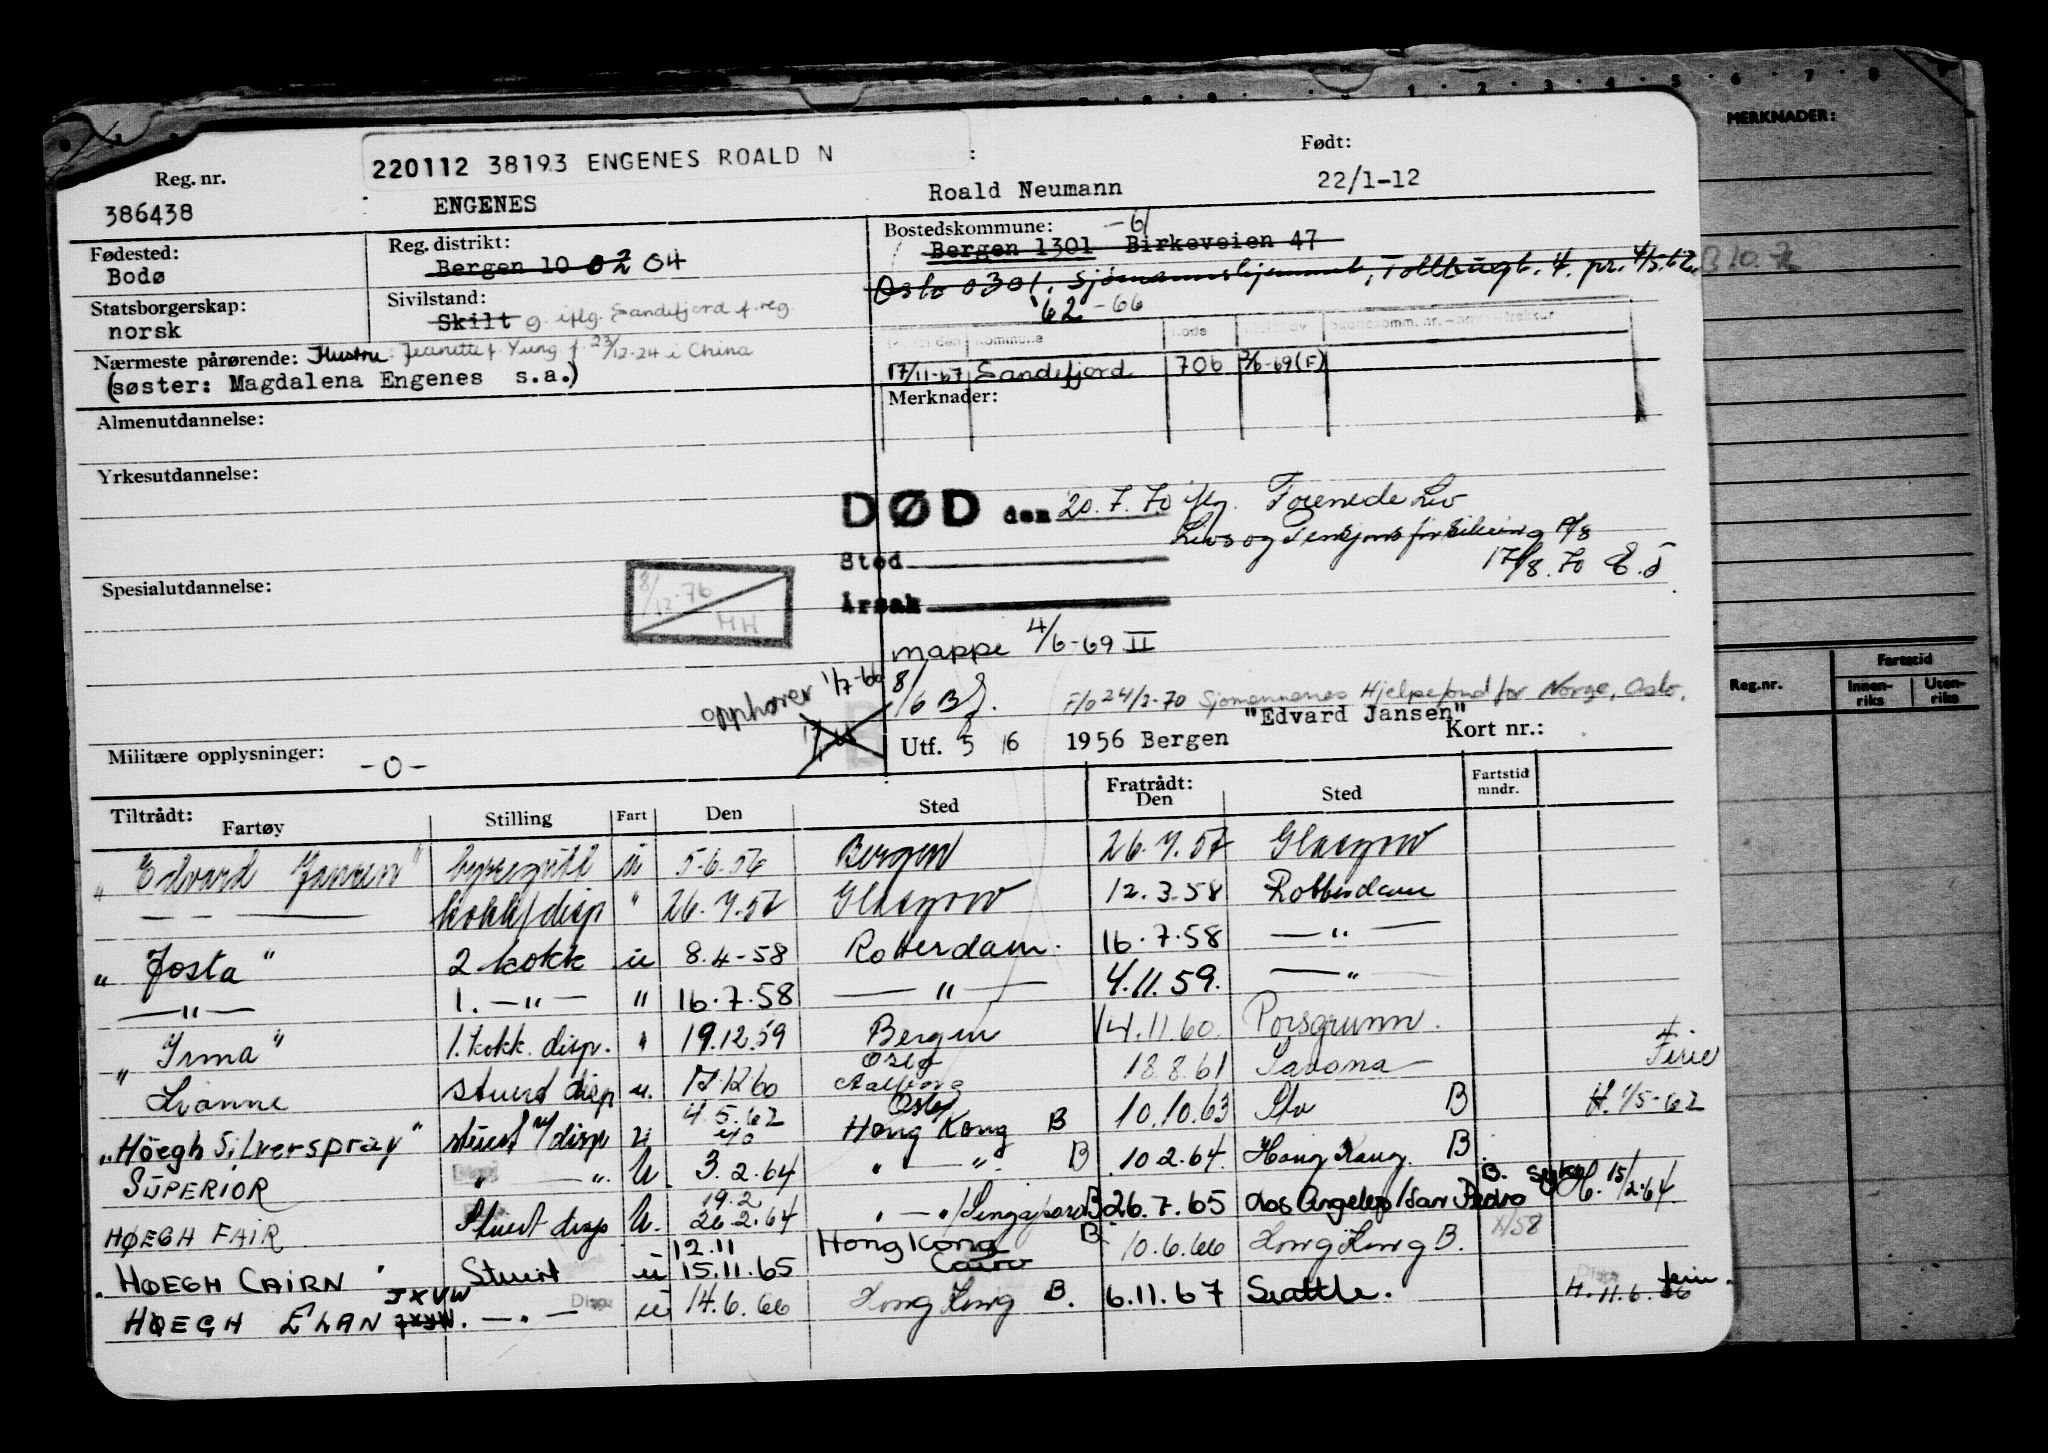 220112 38193 ENGENES ROALD N
Reg. nr. : Født:
386438 ENGENES Roald Neumann 22/1-12
Fødested: Reg. distrikt: Bostedskommune: -61
Bodø Bergen 10 02 04 Bergen 1301 Birkeveien 47
Oslo 0301, Sjømannshjemmet, Tollbugt. 4. pr. 4/5.62.
Statsborgerskap: Sivilstand: '62-66
norsk Skilt g. iflg. Sandefjord f.reg.
Kommune Kode
Nærmeste pårørende: Hustru: Jeanette f. Yung f. 23/12-24 i China
17/11-67 Sandefjord 706 3/6-69(F)
(søster: Magdalena Engenes s.a.)
Merknader:
Almenutdannelse:
Yrkesutdannelse:
DØD den 20.7.70 iflg. Forenede Liv
Livs og Pensjonsforsikring A/S
Sted 17/8.70 E.J
Spesialutdannelse:
8/12-76
HH
Årsak
mappe 4/6-69 II
opphører 1/7-66
8/6 B
F/o 24/2-70 Sjømennenes Hjelpefond for Norge, Oslo.
"Edvard Jansen"
Utf. 5 / 6 1956 Bergen Kort nr.:
Militære opplysninger: -0-
Tiltrådt: Fratrådt:
Fartøy Stilling Fart Den Sted Den Sted Fartstid mndr.
"Edvard Jansen" byssegutt u 5-6.56 Bergen 26.7.57 Glasgow
— — — kokk/disp " 26.7.57 Glasgow 12.3.58 Rotterdam
"Josta" 2 kokk u 8.4-58 Roterdam. 16.7.58 — " —
— " — 1. — " — " 16.7.58 — " — 4.11.59. — " —
"Irma" 1. kokk. disp. " 19.12.59 Bergen 14.11.60. Porsgrunn.
Oslo
Lianne stuert disp u. 17.12.60 Aalborg 18.8.61 Savona — Ferie
4.5.62 Oslo
"Höegh Silverspray" stuert m/disp u Hong Kong B 10.10.63 B H. 1/5-62
SUPERIOR " — " U. 3.2.64 " — " B 10.2.64. Hong Kong. B.
19.2
HØEGH FAIR Stuert disp U. 26.2.64 " — "/Singapore B 26.7.65 Los Angeles/San Pedro B. syke H. 15/2-64
12.11 Hong Kong B.
"HØEGH CAIRN" Stuert u 15.11.65 Cairo 10.6.66 Hong Kong B. H58
HØEGH ELAN JXVW. — " — Disp u 14.6.66 Hong Kong B. 6.11.67 Seattle. H. 11.6.66 ferie.
MERKNADER:
B 10.72
Reg.nr. Fartstid
Innenriks Utenriks